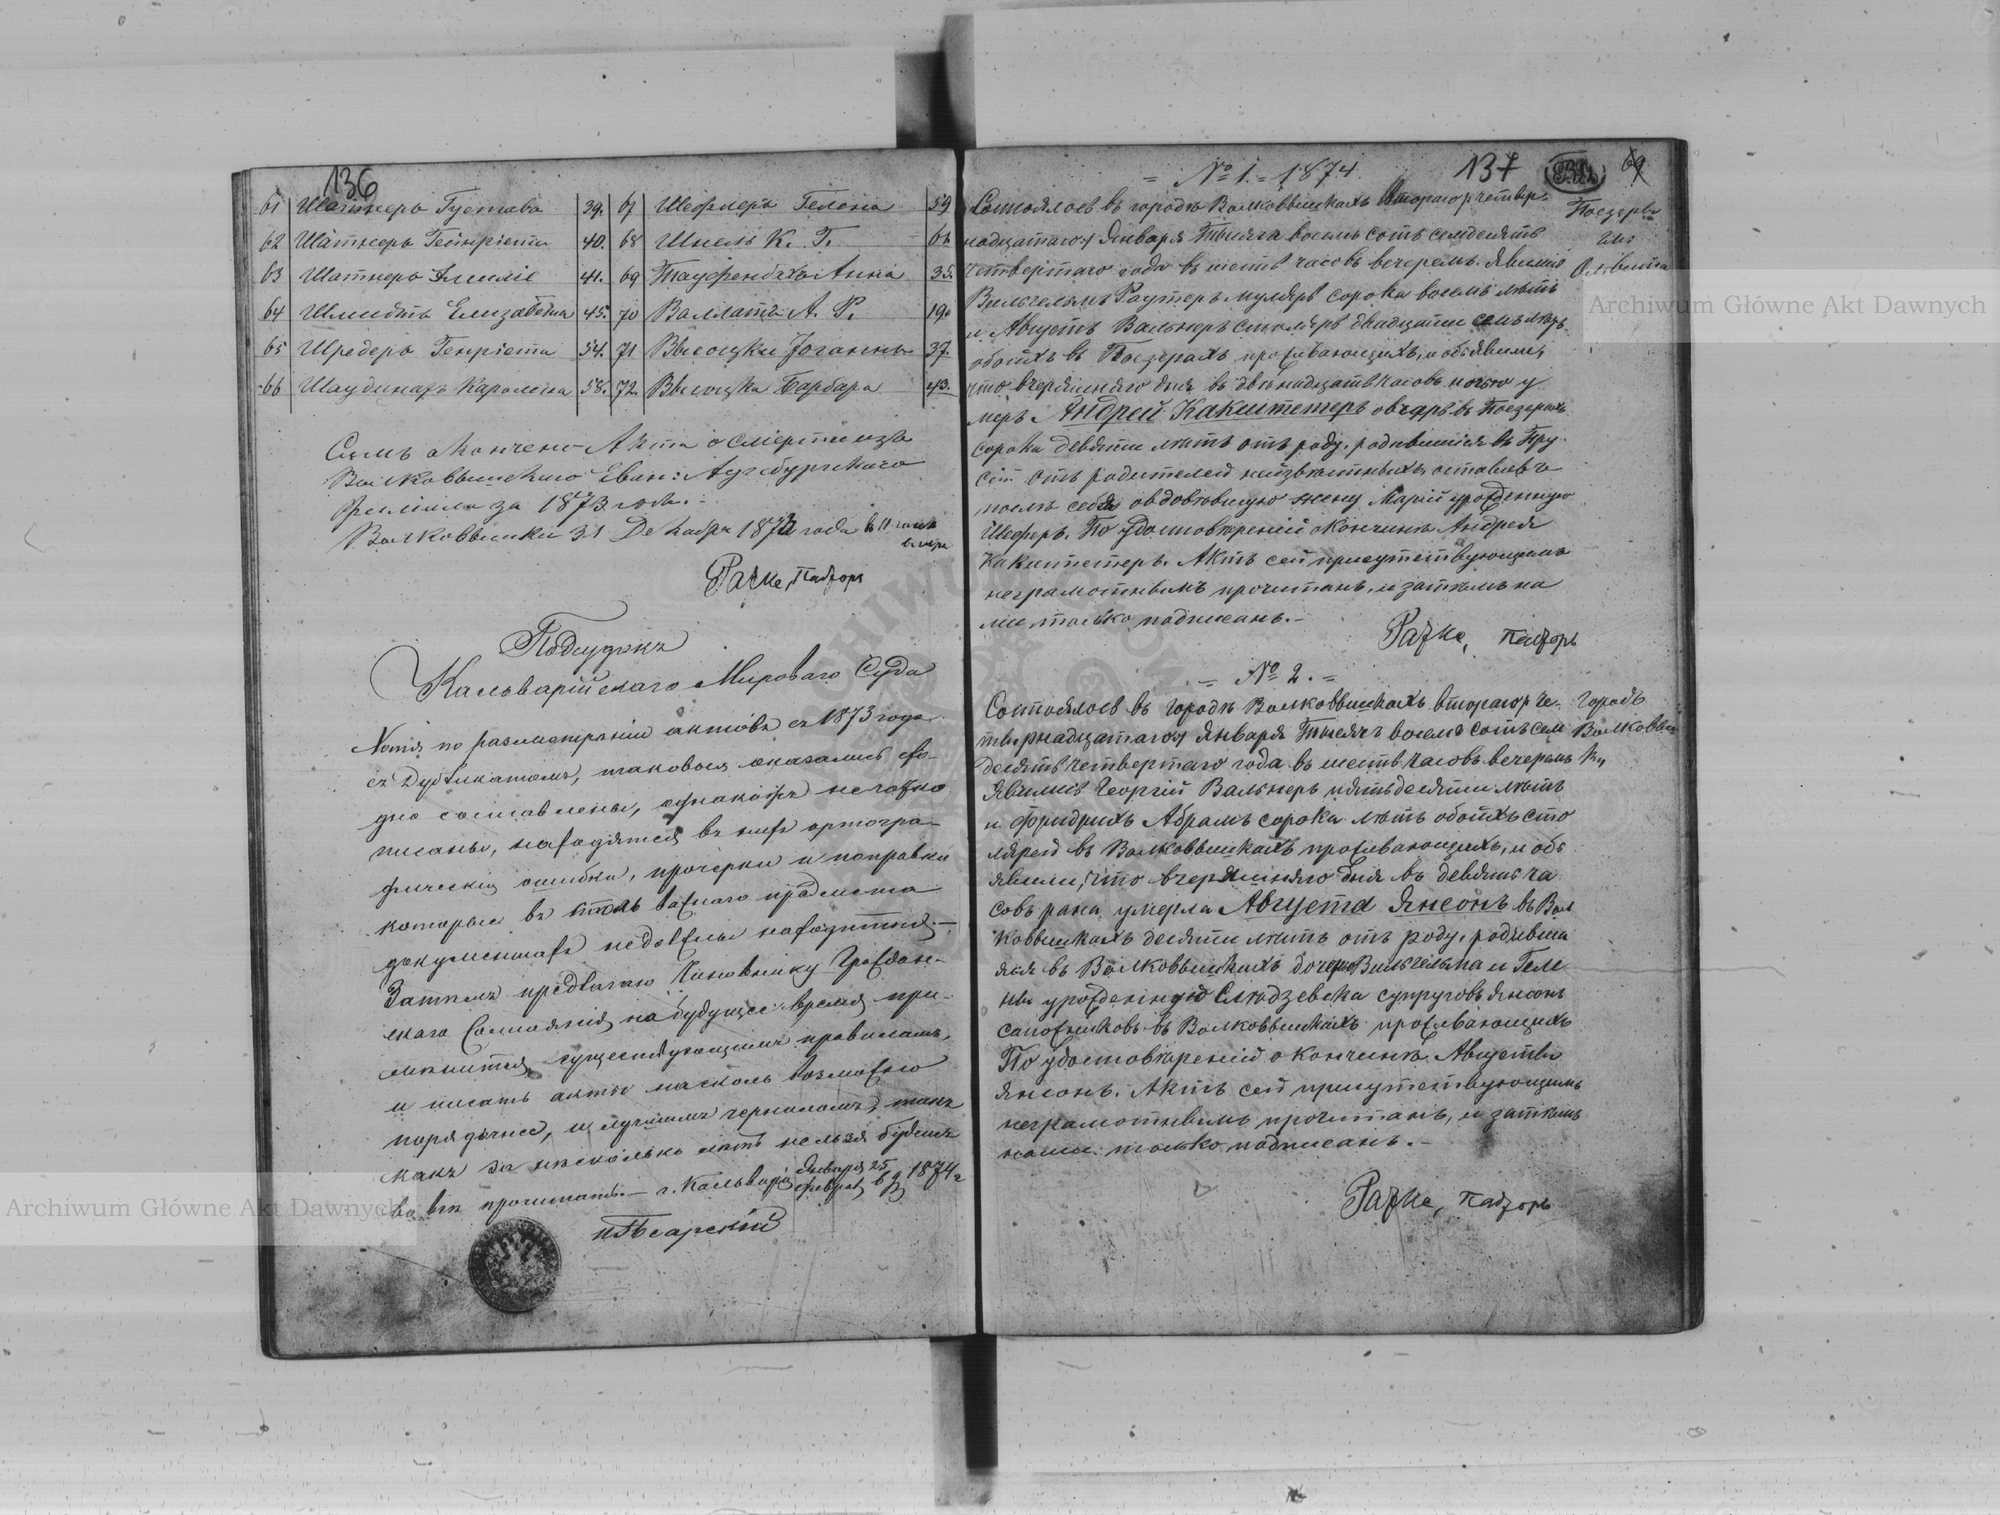 136
61 Шатнеръ Густавъ 39. 67 Шефлеръ Гелена 59
62 Шатнеръ Гейнріета 40. 68 Шнель К. Г. 62.
63 Шатнеръ Эмиліе 41. 69 Тауфенбахъ Анна 35.
64 Шмидтъ Елизабета 45. 70 Валлатъ А. Р. 19.
65 Шредеръ Генріета 54. 71 Высоцки Іоганнъ 37.
66 Шаудинатъ Каролина 58. 72. Высоцка Барбара 43.
Симъ окончено Акта о смерти изъ
Волковышскаго Еван: Аугсбургскаго
Филіала за 1873 годъ.
Волковышки 31 Декабря 1873 года в 11 часовъ
вечера
Рауке, Пасторъ
Подсудокъ
Кальварійскаго Мироваго Суда
Хотя по размотреніи актовъ съ 1873 года
съ Дубликатомъ, таковыя оказались сво-
дно составлены, однакожъ нечотко
писаны, находятся въ нихъ ортогра-
фическія ошибки, прочерки и поправки
которые въ столь важнаго предмета
документахъ недолжны находится.—
Затемъ предлагаю Чиновнику Граждан-
скаго Состоянія, на будущее время при-
менится существующимъ правиламъ,
и писать акты насколь возможно
порядочнее, и лучшимъ черниломъ, такъ
какъ за несколько летъ нельзя будетъ
ихъ прочитать.— г. Кальварія Января 25 1874 г
Февраля 6 д
Псарскій
№ 1. 1874.
137
69
Состоялось въ городѣ Волковышкахъ втораго /четвер-
надцатаго/ Января Тысяча восемь сотъ семдесятъ
четвертаго года въ шесть часовъ вечеромъ. Явились
Вильгельмъ Раутеръ муляръ сорока восемь лѣтъ
и Августъ Вальнеръ столяръ двадцати семь лѣтъ
обоихъ въ Поезерахъ проживающихъ, и объявили,
что вчерашняго дня въ двѣнадцать часовъ ночью у
меръ Андрей Какштетеръ овчаръ въ Поезерахъ
сорока девяти лѣтъ отъ роду, родившійся въ Пру
сіи отъ родителей неизвѣстныхъ оставивъ
послѣ себя овдовѣвшую жену Марію урожденную
Шеферъ. По удостовѣреніи о кончинѣ Андрея
Какштетеръ. Актъ сей присутствующимъ
неграмотнымъ прочитанъ, и затѣмъ на
ми только подписанъ.—
Рауке, Пасторъ
Поезеры
Гм:
Олвита
№ 2.
Состоялось въ городѣ Волковышкахъ втораго /че-
тырнадцатаго/ Января Тысячъ восемь сотъ сем
десятъ четвертаго года въ шесть часовъ вечеромъ
Явились Георгій Вальнеръ пятьдесяти лѣтъ
и Фридрихъ Абрамъ сорока лѣтъ обоихъ сто
ляреи въ Волковышкахъ проживающихъ, и объ
явили, что вчерашняго дня въ девять ча
совъ рана умерла Августа Янсонъ въ Вол
ковышкахъ десяти лѣтъ отъ роду, родивша
яся въ Волковышкахъ дочерь Вильгельма и Геле
ны урожденную Слюдзевска супруговъ Янсонъ
сапожниковъ въ Волковышкахъ проживающихъ
По удостовѣреніи о кончинѣ Августы
Янсонъ. Актъ сей присутствующимъ
неграмотнымъ прочитанъ, и затѣмъ
нами только подписанъ.—
Рауке, Пасторъ
городъ
Волковыш
ки
Archiwum Główne Akt Dawnych
Archiwum Główne Akt Dawnych